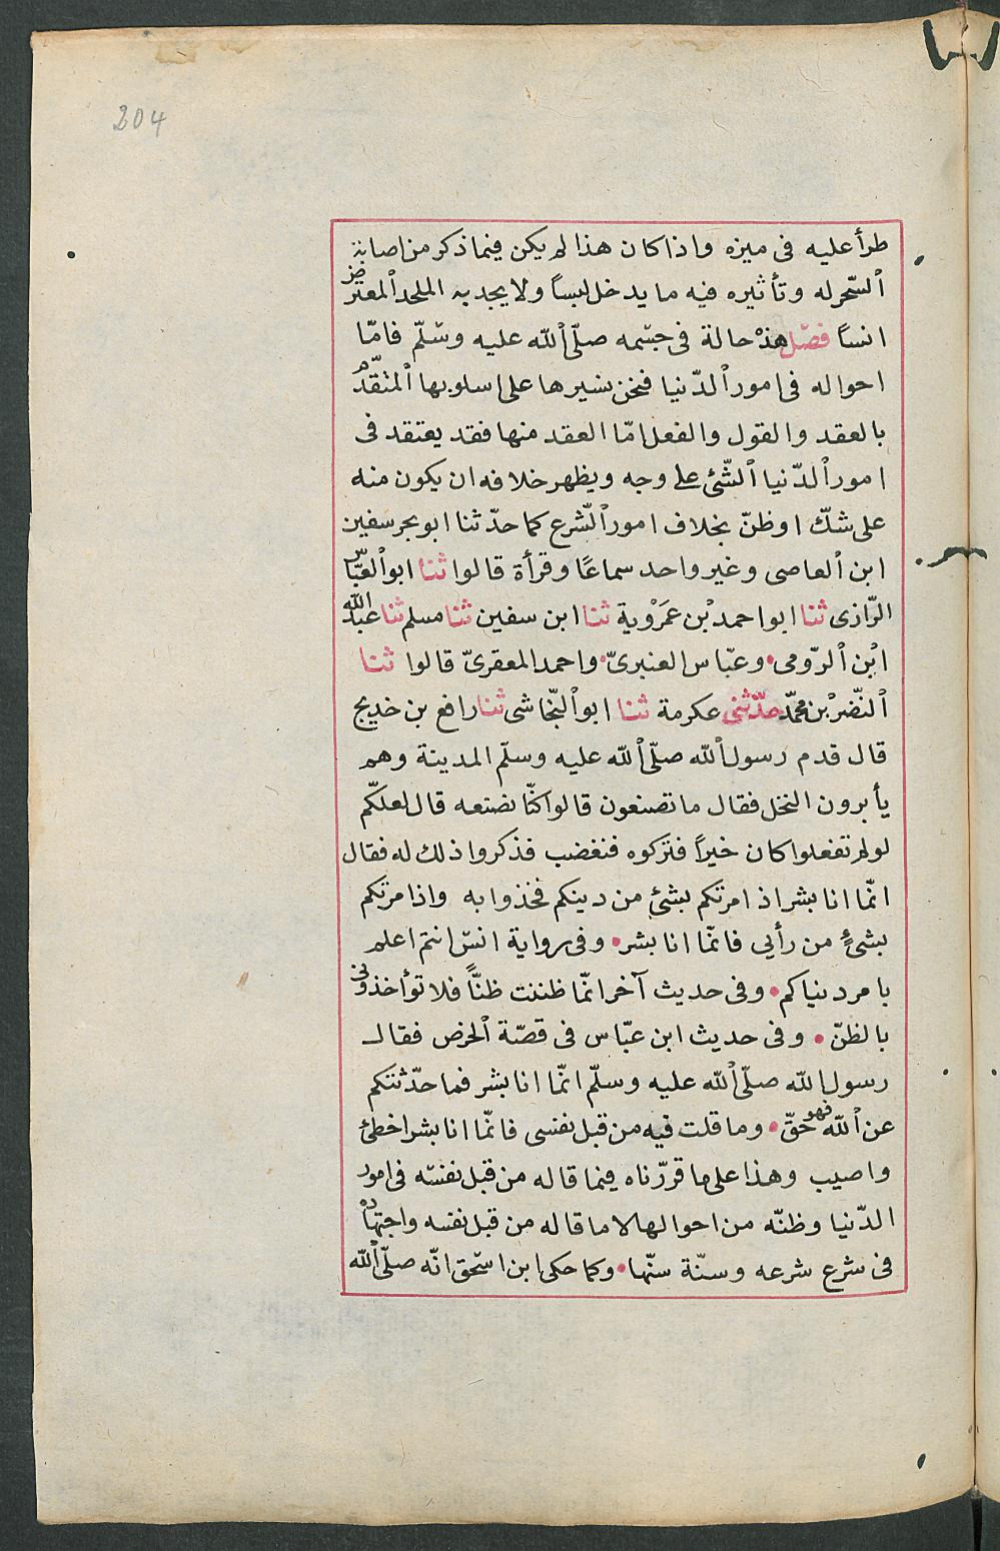 204
طرأ عليه فى ميزه واذا كان هذا لم يكن فيما ذكر من اصابة
ٱلسّحر له وتأثيره فيه ما يدخل لبساً ولا يجد به الملحد ٱلمعترض
انساً فصّل هذه حالة فى جسّمه صلّى ٱللّه عليه وسّلّم فامّا
احواله فى امور ٱلدّنيا فنحن نسيرها على اسلوبها ٱلمتقدّم
بالعقد والقول والفعل امّا العقد منها فقد يعتقد فى
امور ٱلدّنيا ٱلشّئ على وجه ويظهر خلافه ان يكون منه
على شكّ او ظنّ بخلاف امور ٱلشّرع كما حدّثنا ابو بحر سفين
ابن ٱلعاصى وغير واحد سماعًا وقرأة قالوا ثنا ابو ٱلعبّاس
الرّازى ثنا ابو احمد بْن عَمَرْوية ثنا ابن سفين ثنا مسلم ثنا عبد ٱللّه
ابْن ٱلرّومى • وعبّاس العنبرىّ • واحمد المعقرىّ قالوا ثنا
ٱلنّضر بْن محمّد حدّثنى عكرمة ثنا ابو ٱلنّجاشى ثنا رافع بن خديج
قال قدم رسول ٱللّه صلّى ٱللّه عليه وسلّم المدينة وهم
يأبرون النخل فقال ما تصنعون قالوا كنّا نصنعه قال لعلكّم
لو لم تفعلوا كان خيراً فتركوه فنغضب فذكروا ذلك له فقال
انّما انا بشر اذ امرتكم بشئ من دينكم فخذوا به واذا مرتكم
بشئٍ من رأيى فانّما انا بشر • وفى رواية انسّ انتم اعلم
بامر دنياكم • وفى حديث آخر انّما ظننت ظنّاً فلا تؤأخذونى
بالظنّ • وفى حديث ابن عبّاس فى قصّة ٱلخرص فقال
رسول ٱللّه صلّى ٱللّه عليه وسلّم انّما انا بشر فما حدّثتكم
عن ٱللّه فهو حقّ • وما قلت فيه من قبل نفسى فانّما انا بشر اخطئ
واصيب وهذا على ما قررّناه فيما قاله من قبل نفسّه فى امور
الدّنيا وظنّه من احوالها لا ما قاله من قبل نفسه واجتهاده
فى شرع شرعه وسنّة سنّها • وكما حكى ابن اسّحق انّه صلّى ٱللّه